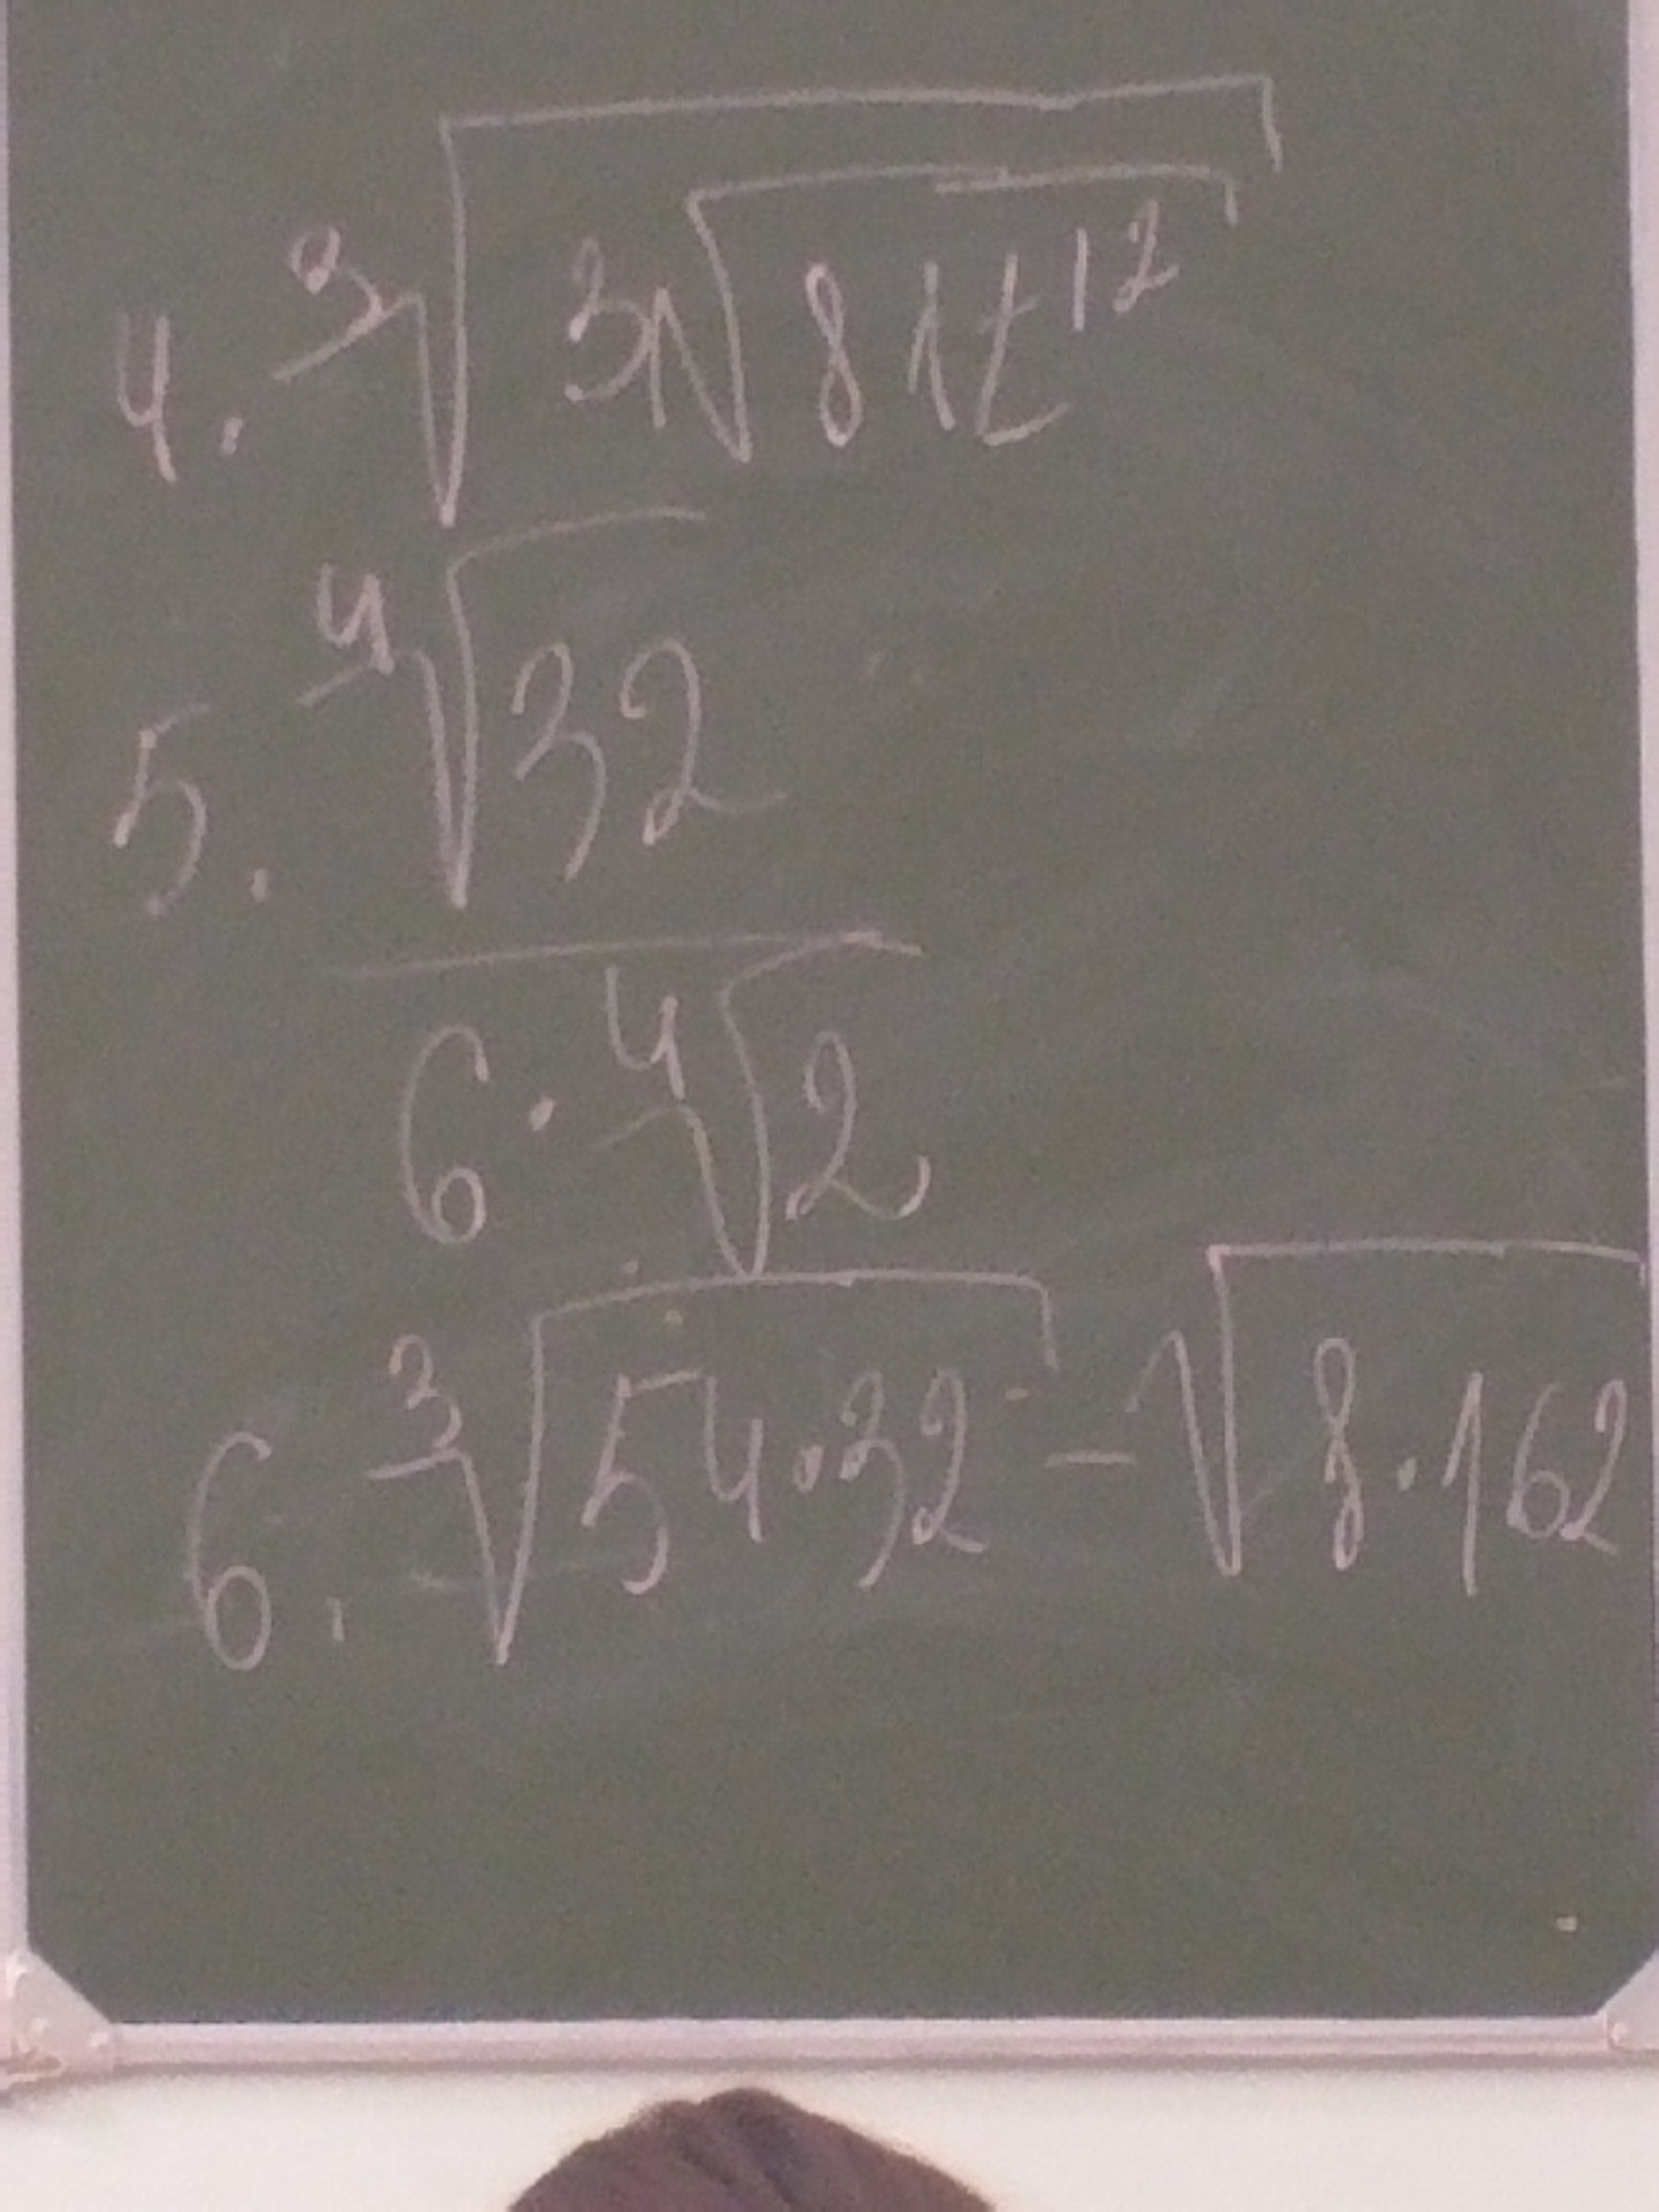 4. ∛(3√(81t¹²))
5. ⁴√32
6·⁴√2
6. ∛(54·32) - √(8·162)